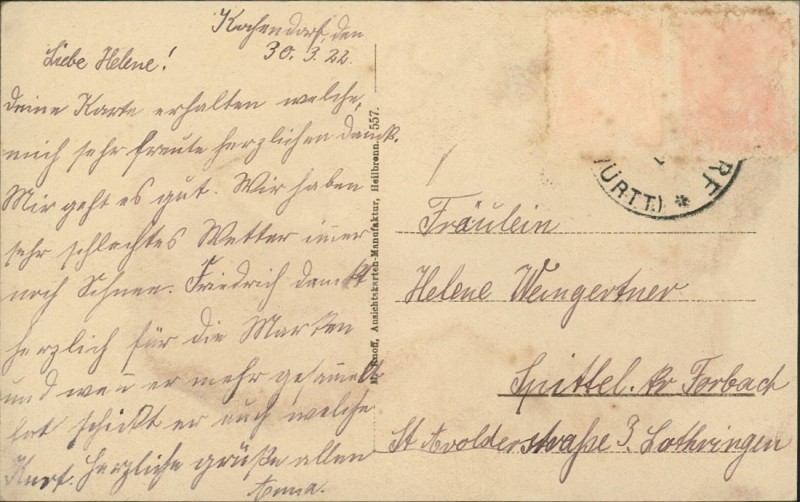 Kochendorf, den
30. 3. 22.
Liebe Helene!
Deine Karte erhalten welche,
mich sehr freute herzlichen dank.
Mir geht es gut. Wir haben
sehr schlechtes Wetter imer
noch Schnee. Friedrich dankt
herzlich für die Marken
und wen er mehr gesamelt
hat schickt er euch welche
Herzliche grüße allen
Anna.
Knoff, Ansichtskarten-Manufaktur, Heilbronn. 557.
RF
(WÜRTT.) *
Fräulein
Helene Weingertner
Spittel. kr Forbach
St Avolderstraße 3. Lothringen